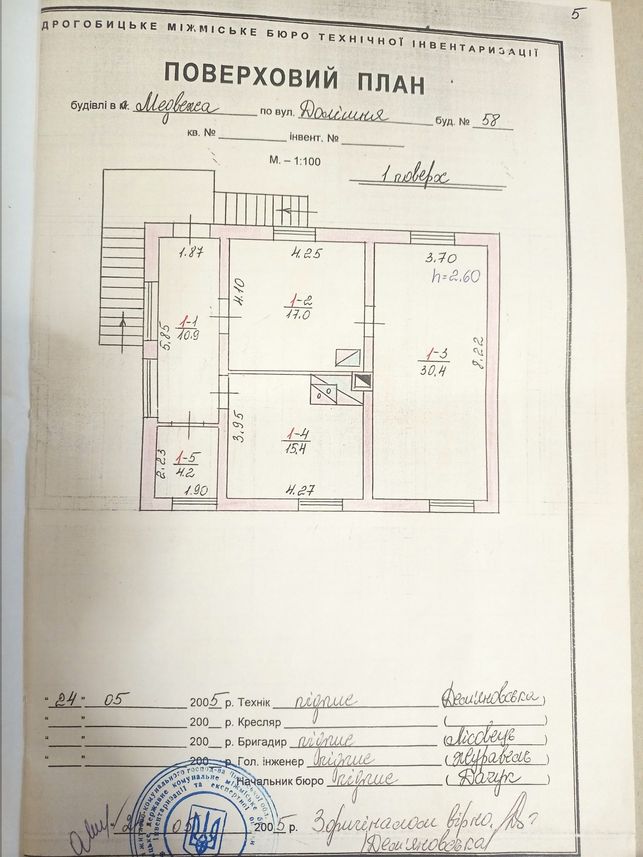 5
ДРОГОБИЦЬКЕ МІЖМІСЬКЕ БЮРО ТЕХНІЧНОЇ ІНВЕНТАРИЗАЦІЇ
ПОВЕРХОВИЙ ПЛАН
будівлі в с. Медвежа по вул. Долішня буд. № 58
кв. № інвент. №
М. – 1:100
1 поверх
1.87 4.25 3.70
h=2.60
4.10
1-1
10.9
5.85
1-2
17.0
1-3
30.4
8.22
3.95
1-4
15.4
2.23
1-5
4.2
1.90 4.27
"24" 05 2005 р. Технік підпис (Дем'яновська)
" " 200 р. Кресляр ( )
" " 200 р. Бригадир підпис (Лісовець)
" " 200 р. Гол. інженер підпис (Журавель)
Начальник бюро підпис (Дачук)
05 2005 р. З оригіналом вірно
(Дем'яновська)